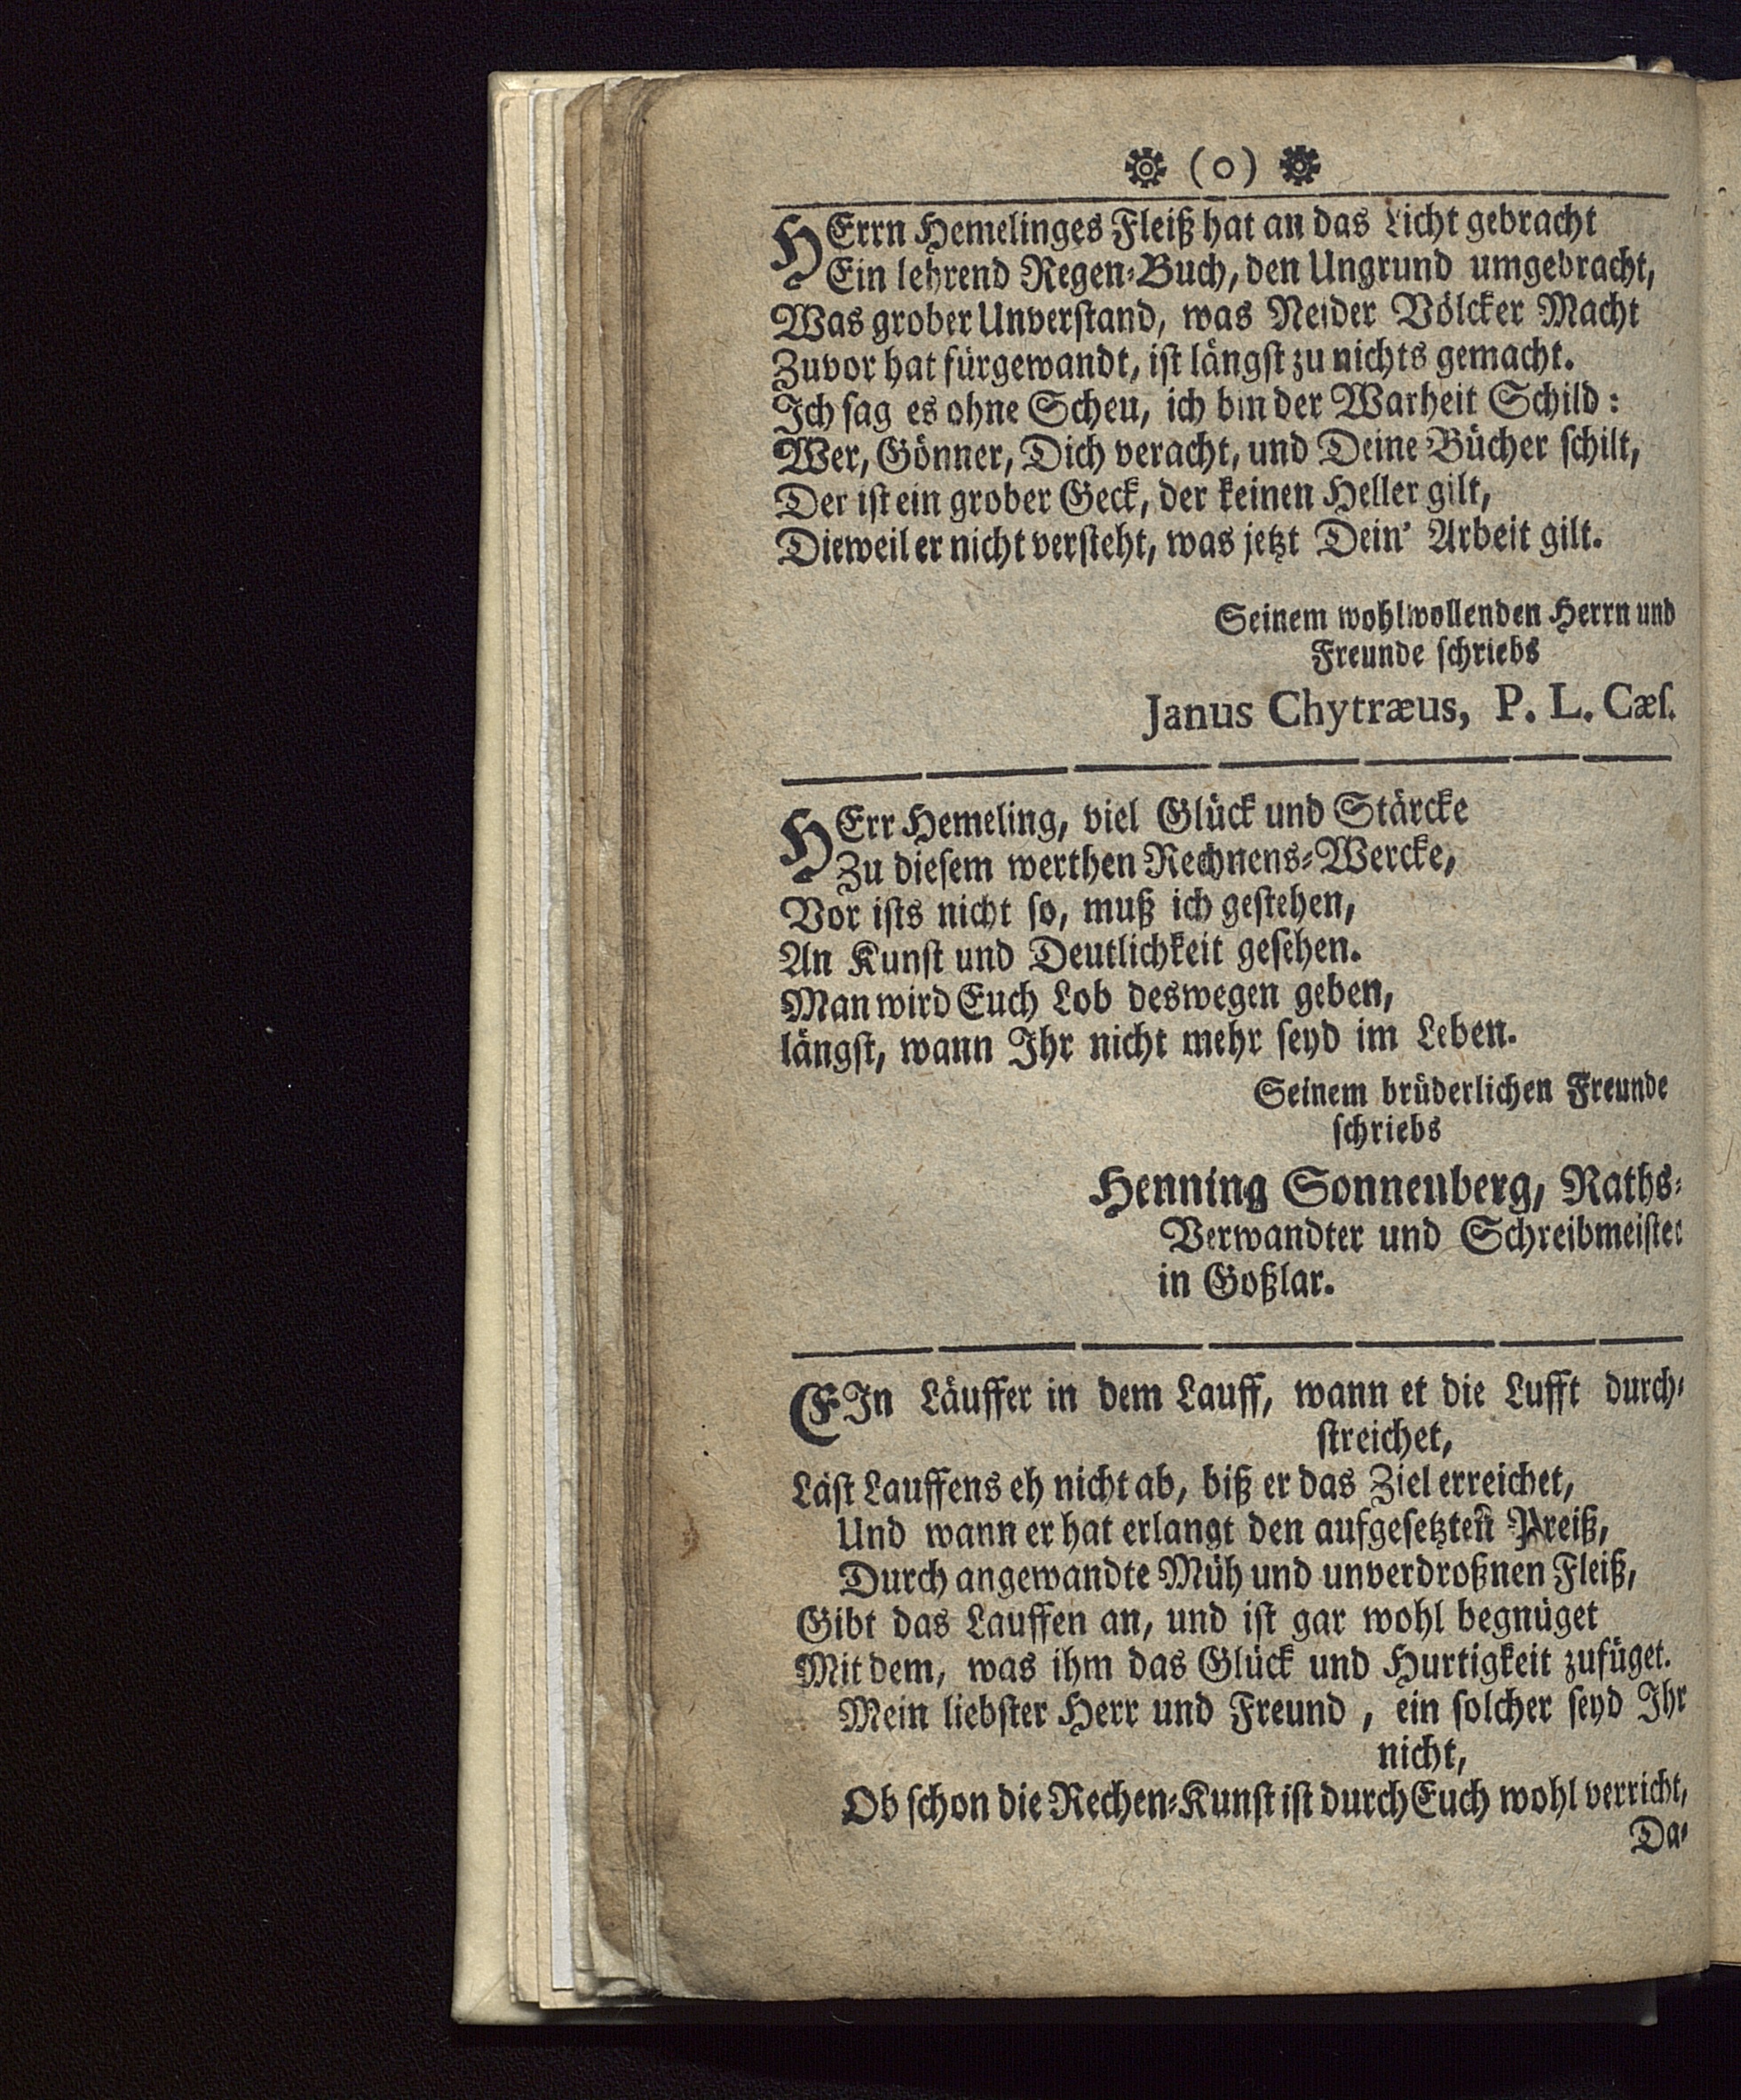 (o)
HErrn Hemelinges Fleiß hat an das Licht gebracht
Ein lehrend Regen-Buch, den Ungrund umgebracht,
Was grober Unverstand, was Neider Völcker Macht
Zuvor hat fürgewandt, ist längst zu nichts gemacht.
Ich sag es ohne Scheu, ich bin der Warheit Schild:
Wer, Gönner, Dich veracht, und Deine Bücher schilt,
Der ist ein grober Geck, der keinen Heller gilt,
Dieweil er nicht versteht, was jetzt Dein' Arbeit gilt.
Seinem wohlwollenden Herrn und
Freunde schriebs
Janus Chytræus, P. L. Cæſ.
HErr Hemeling, viel Glück und Stärcke
Zu diesem werthen Rechnens-Wercke,
Vor ists nicht so, muß ich gestehen,
An Kunst und Deutlichkeit gesehen.
Man wird Euch Lob deswegen geben,
längst, wann Ihr nicht mehr seyd im Leben.
Seinem brüderlichen Freunde
schriebs
Henning Sonnenberg, Raths-
Verwandter und Schreibmeister
in Goßlar.
EIn Läuffer in dem Lauff, wann et die Lufft durch-
streichet,
Läst Lauffens eh nicht ab, biß er das Ziel erreichet,
Und wann er hat erlangt den aufgesetzten Preiß,
Durch angewandte Müh und unverdroßnen Fleiß,
Gibt das Lauffen an, und ist gar wohl begnüget
Mit dem, was ihm das Glück und Hurtigkeit zufüget.
Mein liebster Herr und Freund, ein solcher seyd Ihr
nicht,
Ob schon die Rechen-Kunst ist durch Euch wohl verricht,
Da-